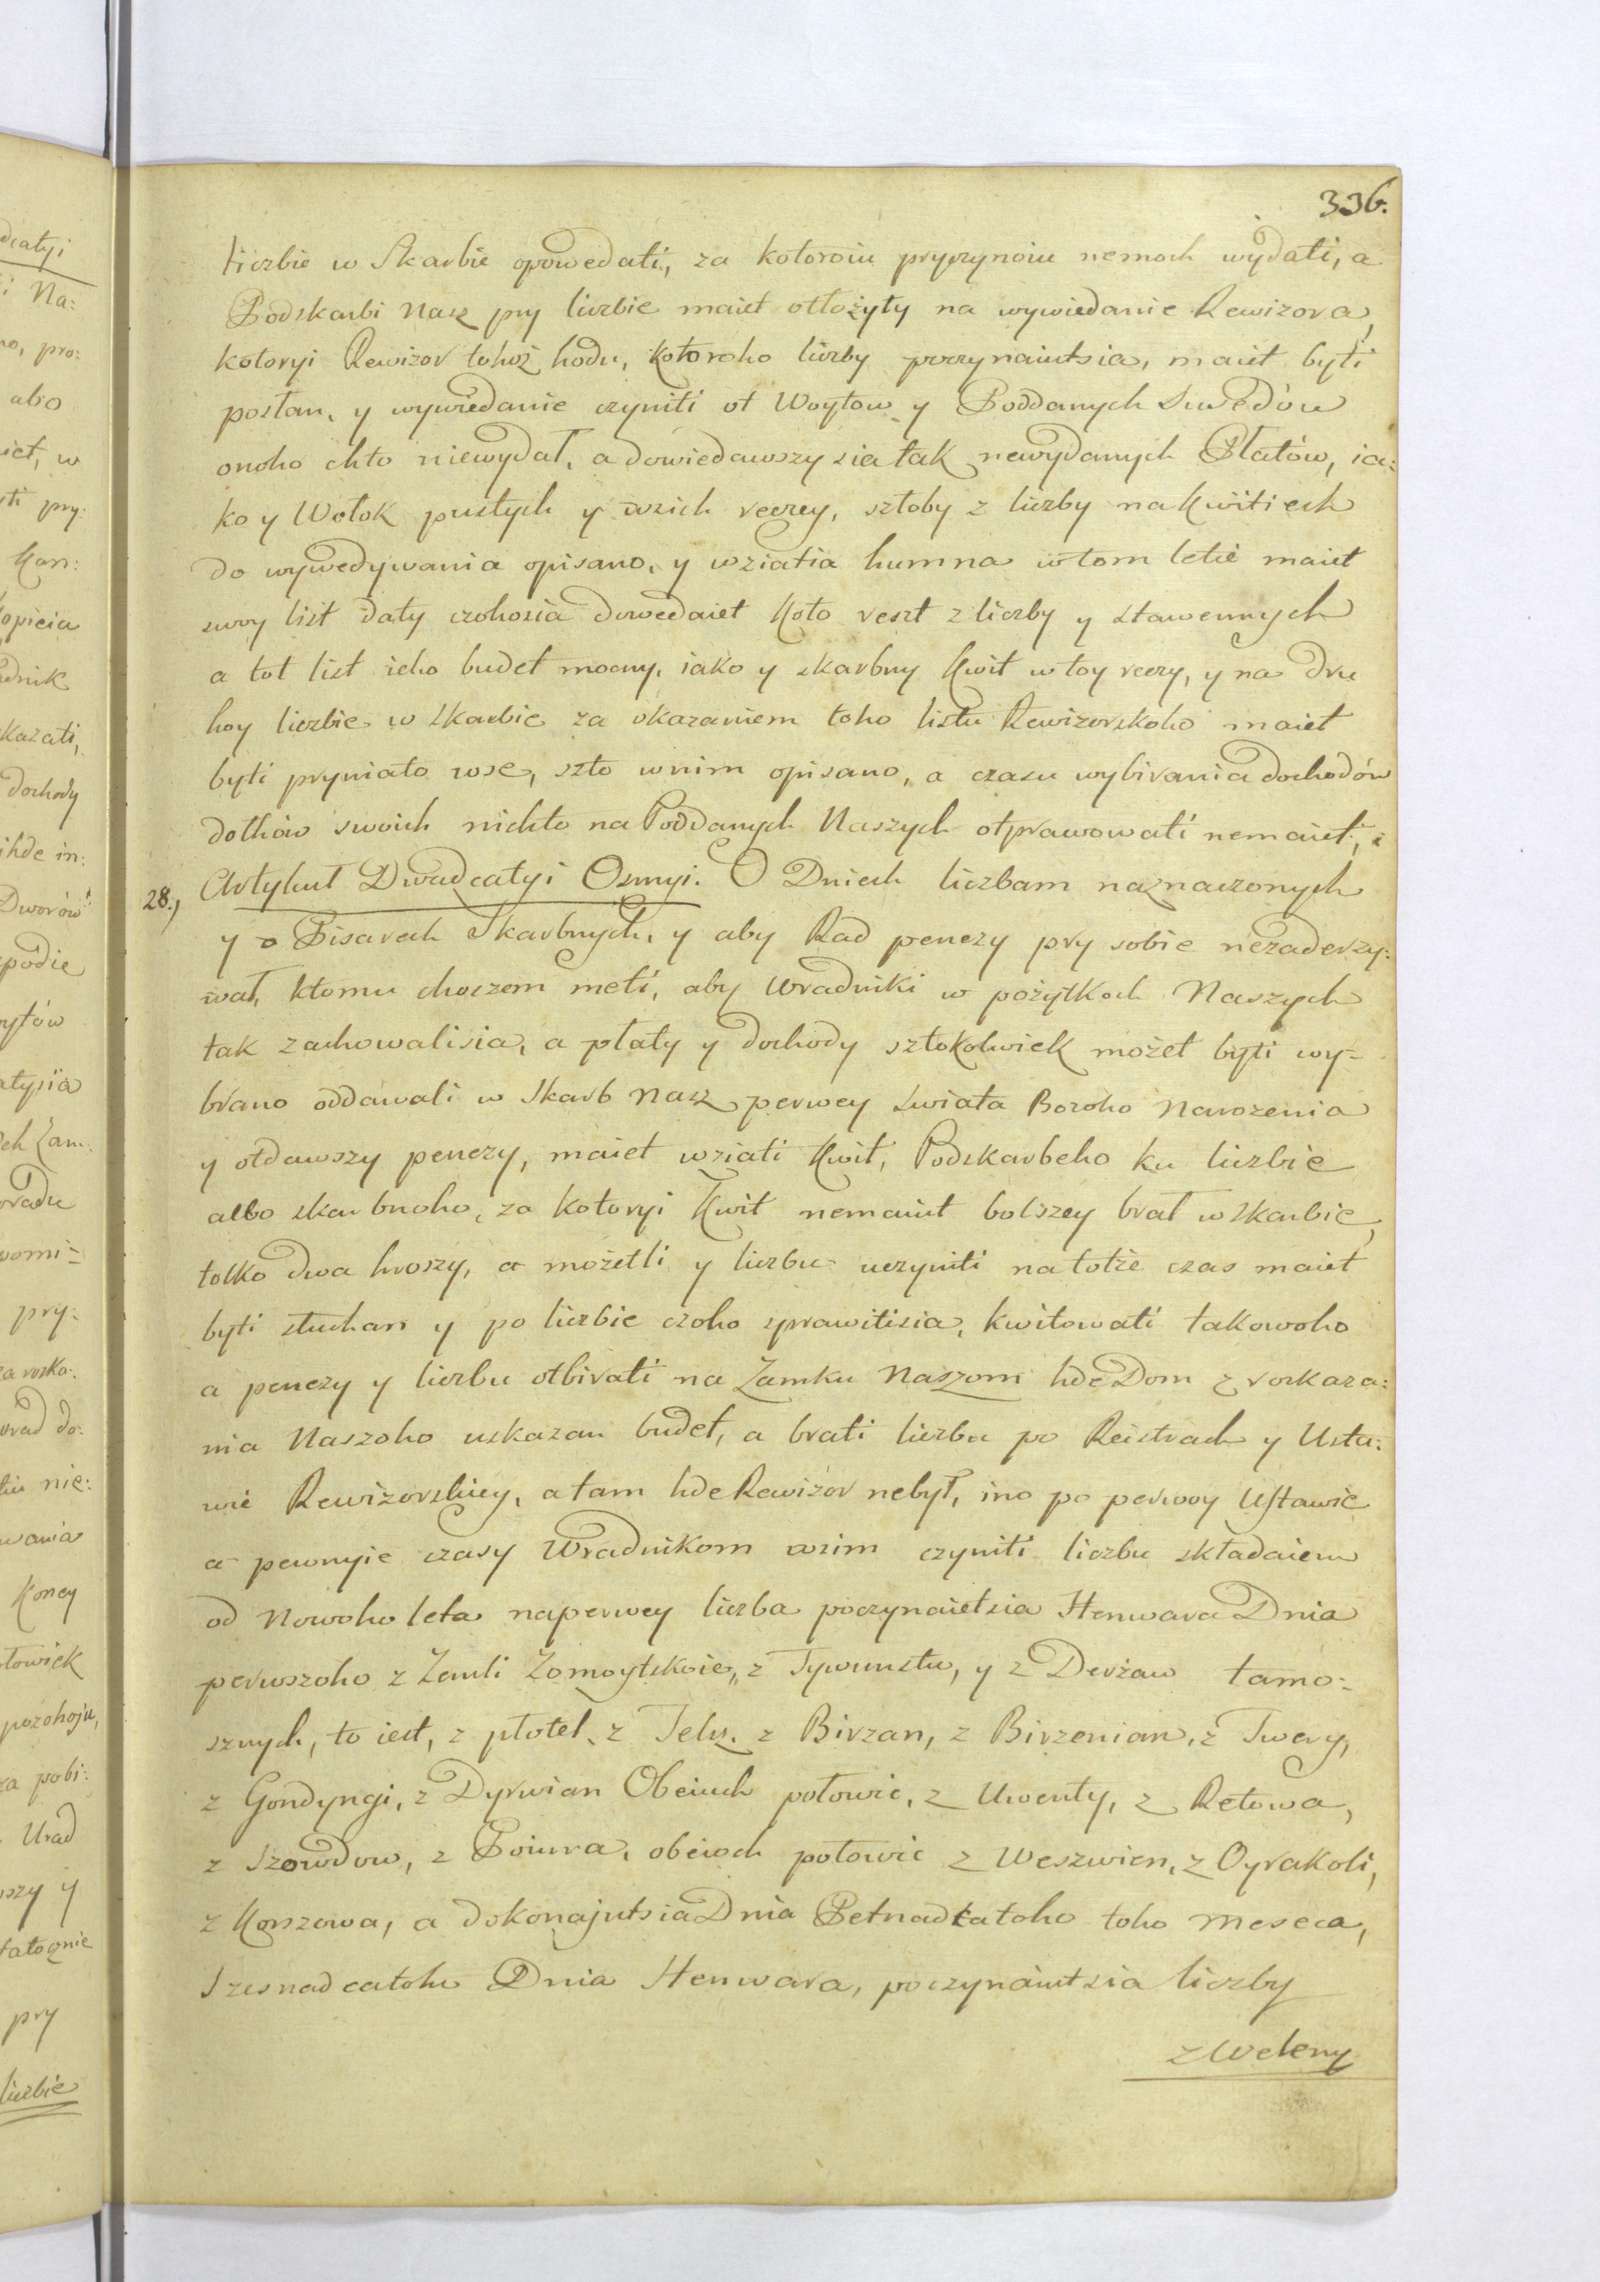 336.
liczbie w Skarbie opowedati, za kotoroiu pryczynoiu nemoch wydati, a
Podskarbi Nasz pry liczbie maiet otłożyty na wywiedanie Rewizora,
kotoryi Rewizor tohoż hodu, kotoroho liczby poczynaiutsia, maiet byti
posłan, y wywiedanie czyniti ot Woytow y Poddanych Suwedów
onoho chto niewydał, a dowiedawszy sia tak newydanych Płatów, ia:
ko y Wołok pustych y wsich reczey, sztoby z liczby na kwitiech
do wywedywania opisano, y wziatia humna w tom letie maiet
swoy list daty czohosia dowedaiet koto reszt z liczby y stawennych
a tot list ieho budet mocny, iako y skarbny kwit w toy reczy, y na dru
hoy liczbie w skarbie za okazaniem toho listu Rewizorskoho maiet
byti pryniato wse, szto w nim opisano, a czasu wybirania dochodów
dołhów swoich nichto na Poddanych Naszych otprawowati nemaiet,
28.) Artykuł Dwadcatyi Osmyi. O Dniech liczbam naznaczonych
y o Pisarech Skarbnych, y aby Rad penezy pry sobie nezaderzy:
wał, ktomu choczem meti, aby Wradniki w pożytkoch Naszych
tak zachowalisia, a płaty y dochody sztokolwiek możet byti wy-
brano oddawali w Skarb Nasz perwey Swiata Bozoho Narozenia
y otdawszy penezy, maiet wziati kwit, Podskarbeho ku liczbie
albo skarbnoho, za kotoryi kwit nemaiut bolszey brat w skarbie,
tolko dwa hroszy, a możetli y liczbu uczyniti na totże czas maiet
byti słuchan y po liczbie czoho sprawitisia, kwitowati takowoho
a penezy y liczbu otbirati na Zamku Naszom hde Dom z roskaza:
nia Naszoho uskazan budet, a brati liczbu po Reiestrach y Usta:
wie Rewizorskiey, a tam hde Rewizor nebył, ino po perwoy Ustawie
a pewnyie czasy Wradnikom wsim czyniti liczbu składaiem
od Nowoho leta naperwey liczba poczynaietsia Henwara Dnia
perwszoho z Zemli Zomoytskoie, z Tywunstw, y z Derżaw tamo:
sznych, to iest, z płotel, z Telsz, z Birzan, z Birzenian, z Twery,
z Gondyngi, z Dyrwian Obeiuch połowic, z Uwenty, z Retowa,
z Szowdow, z Poiura, obeioch połowic z Weszwien, z Oyrakoli,
z Korszowa, a dokonajutsia Dnia Petnadcatoho toho meseca,
Szesnadcatoho Dnia Henwara, poczynaiutsia liczby
z Weleny